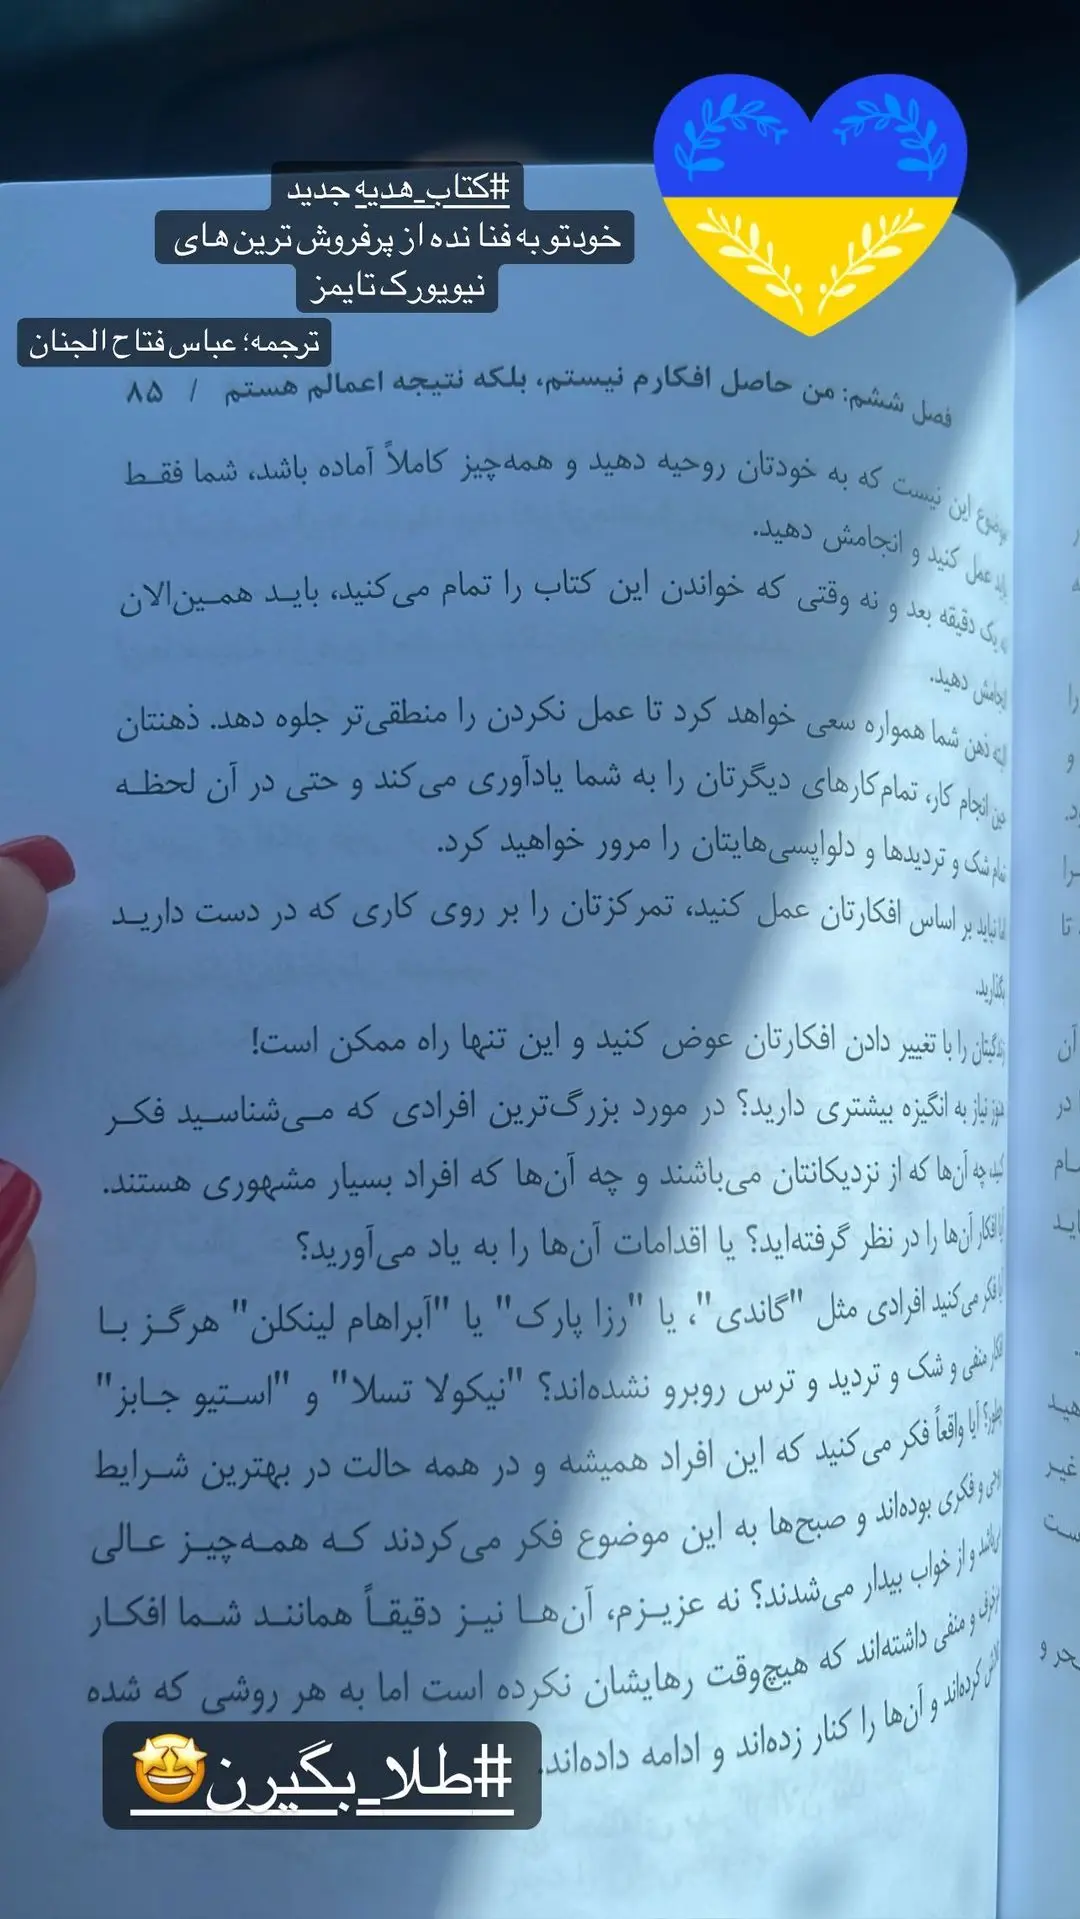 #کتاب_هدیه جدید
خودتو به فنا نده از پرفروش ترین های
نیویورک تایمز
ترجمه؛ عباس فتاح الجنان
فصل ششم: من حاصل افکارم نیستم، بلکه نتیجه اعمالم هستم / ۸۵
موضوع این نیست که به خودتان روحیه دهید و همه‌چیز کاملاً آماده باشد، شما فقط
باید عمل کنید و انجامش دهید.
نه یک دقیقه بعد و نه وقتی که خواندن این کتاب را تمام می‌کنید، باید همین‌الان
انجامش دهید.
البته ذهن شما همواره سعی خواهد کرد تا عمل نکردن را منطقی‌تر جلوه دهد. ذهنتان
حین انجام کار، تمام کارهای دیگرتان را به شما یادآوری می‌کند و حتی در آن لحظه
تمام شک و تردیدها و دلواپسی‌هایتان را مرور خواهید کرد.
اما نباید بر اساس افکارتان عمل کنید، تمرکزتان را بر روی کاری که در دست دارید
بگذارید.
زندگیتان را با تغییر دادن افکارتان عوض کنید و این تنها راه ممکن است!
هنوز نیاز به انگیزه بیشتری دارید؟ در مورد بزرگ‌ترین افرادی که می‌شناسید فکر
کنید، چه آن‌ها که از نزدیکانتان می‌باشند و چه آن‌ها که افراد بسیار مشهوری هستند.
آیا افکار آن‌ها را در نظر گرفته‌اید؟ یا اقدامات آن‌ها را به یاد می‌آورید؟
آیا فکر می‌کنید افرادی مثل "گاندی"، یا "رزا پارک" یا "آبراهام لینکلن" هرگز با
افکار منفی و شک و تردید و ترس روبرو نشده‌اند؟ "نیکولا تسلا" و "استیو جابز"
چطور؟ آیا واقعاً فکر می‌کنید که این افراد همیشه و در همه حالت در بهترین شرایط
روحی و فکری بوده‌اند و صبح‌ها به این موضوع فکر می‌کردند که همه‌چیز عالی
می‌باشد و از خواب بیدار می‌شدند؟ نه عزیزم، آن‌ها نیز دقیقاً همانند شما افکار
و منفی داشته‌اند که هیچ‌وقت رهایشان نکرده است اما به هر روشی که شده
تلاش کرده‌اند و آن‌ها را کنار زده‌اند و ادامه داده‌اند.
#طلا_بگیرن🤩